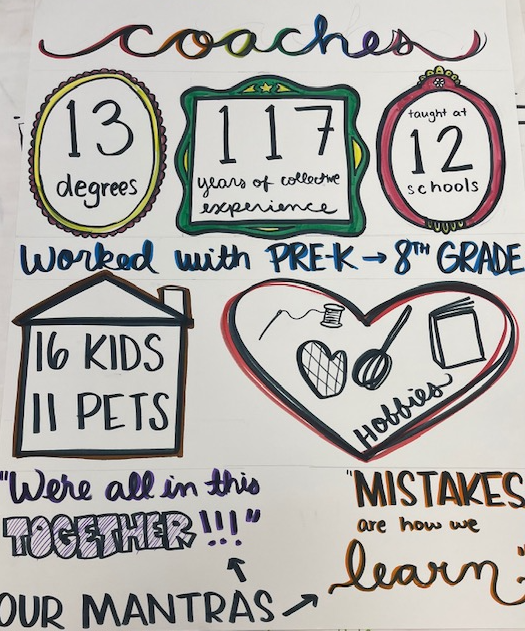 coaches
13
degrees
117
years of collective
experience
taught at
12
schools
Worked with PRE-K → 8TH GRADE
16 KIDS
11 PETS
Hobbies
"We're all in this
TOGETHER!!!"
"MISTAKES
are how we
learn"
OUR MANTRAS